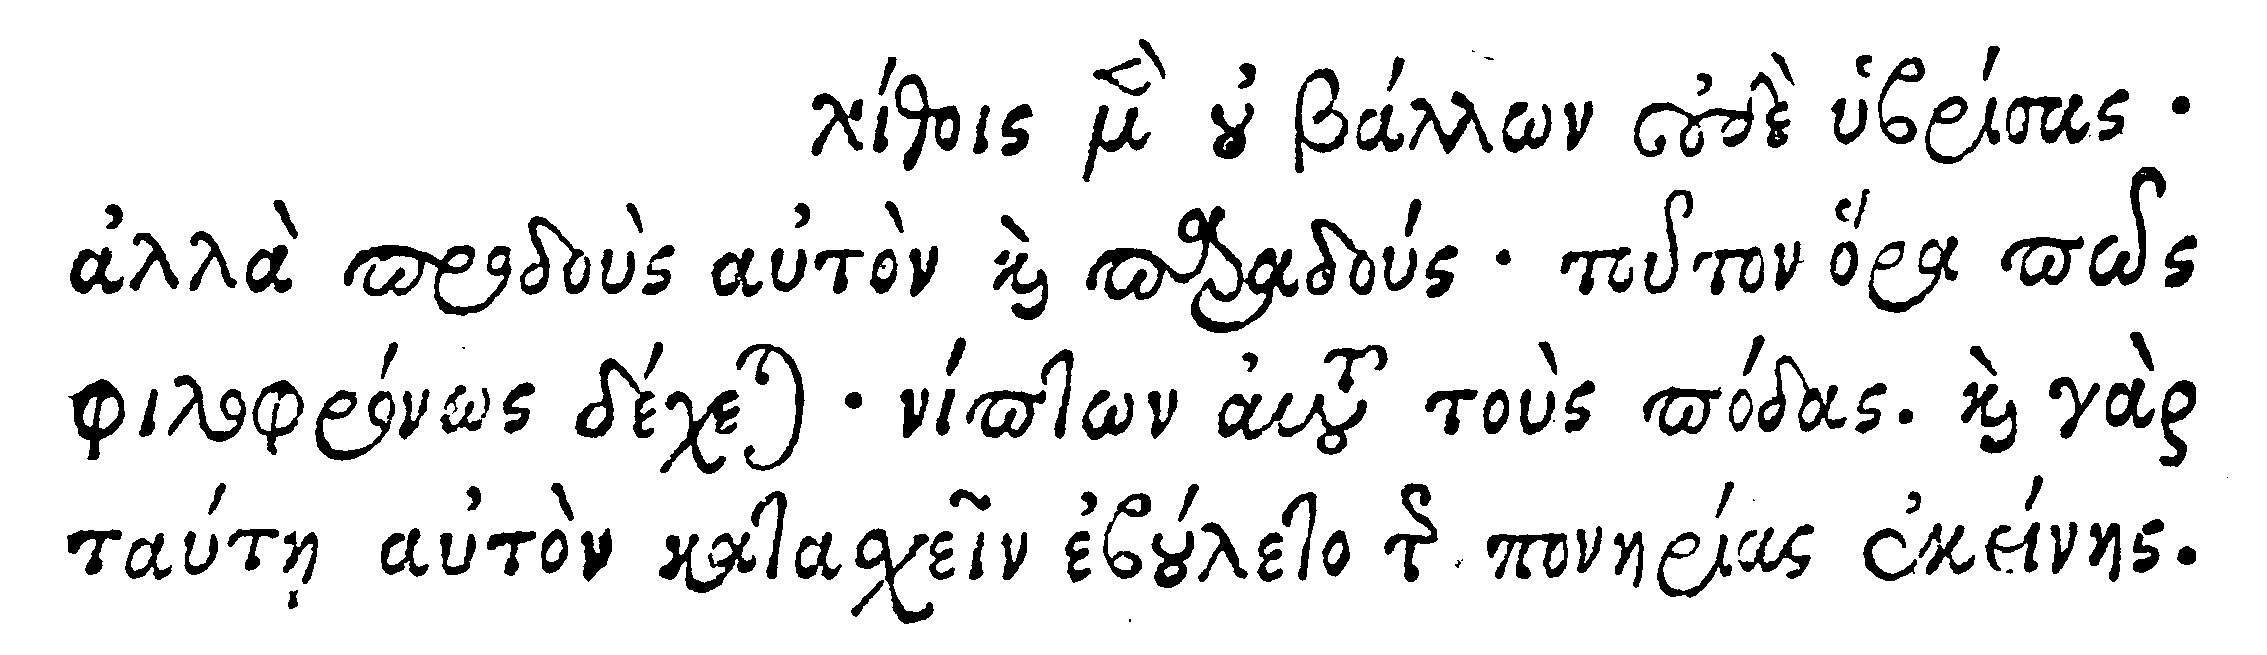 λίθοις μὲν οὐ βάλλων οὐδὲ ὑβρίσας·
ἀλλὰ προδοὺς αὐτὸν καὶ παραδούς· τοῦτον ὅρα πῶς
φιλοφρόνως δέχεται· νίπτων αὐτοῦ τοὺς πόδας. καὶ γὰρ
ταύτῃ αὐτὸν κατασχεῖν ἐβούλετο τῆς πονηρίας ἐκείνης.